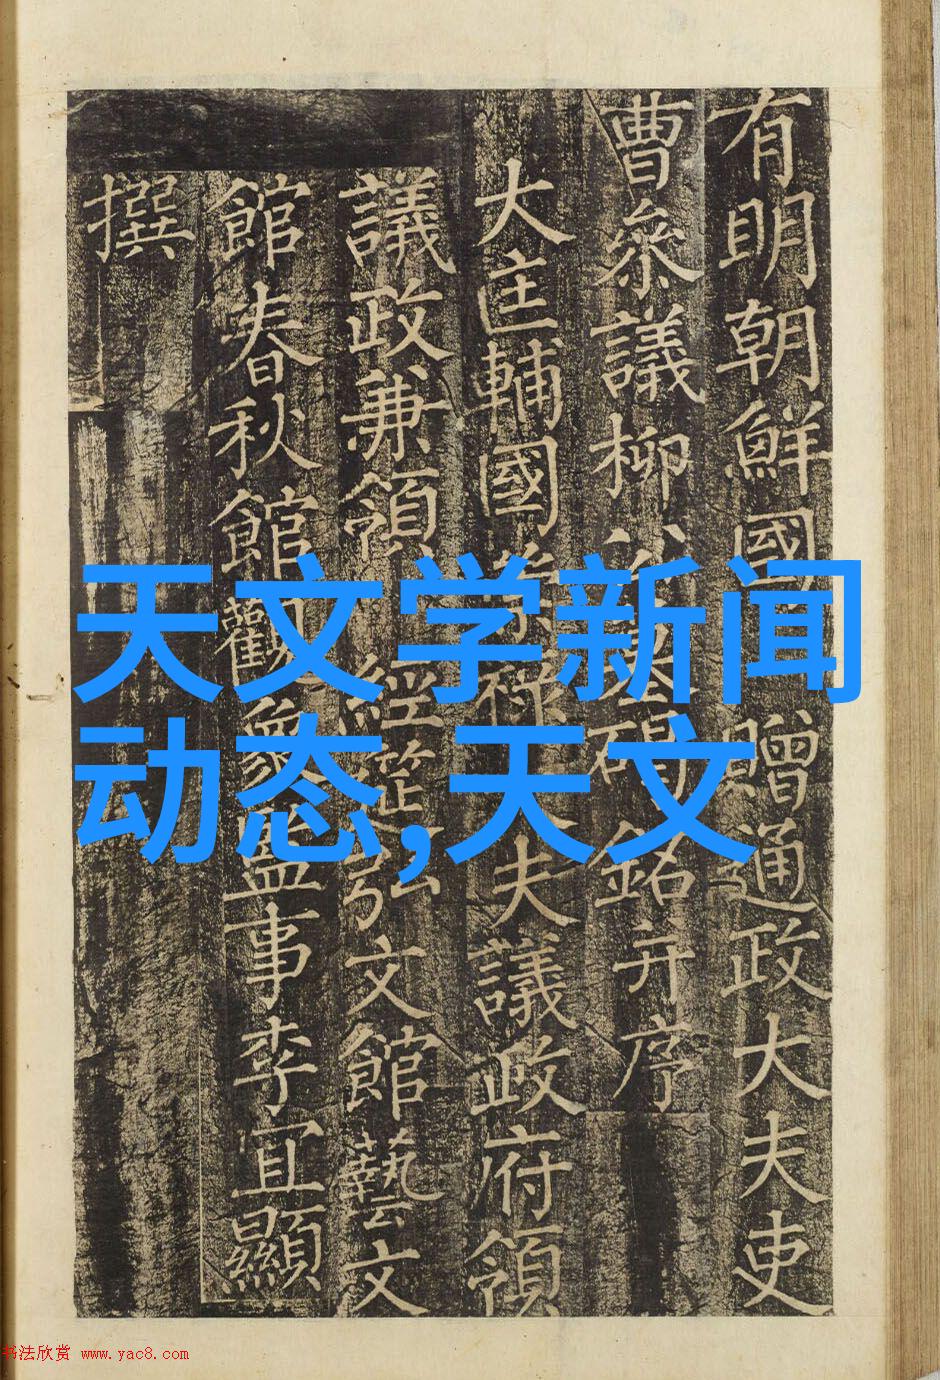 有明朝鮮國
贈通政大夫吏
曹參議柳公墓碣銘并序
大匡輔國崇祿大夫議政府領
議政兼領
經筵弘文館藝文
館春秋館觀象監事李宜顯
撰
天文学新闻
动态,天文
书法欣赏 www.yac8.com